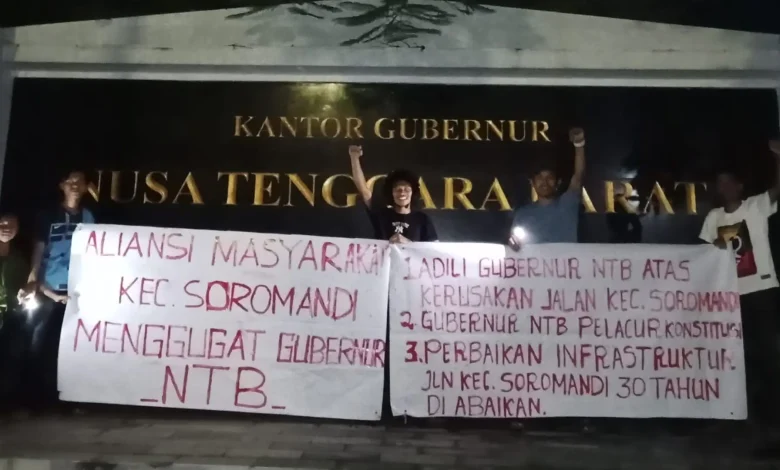 KANTOR GUBERNUR
NUSA TENGGARA BARAT
ALIANSI MASYARAKA
KEC. SOROMANDI
MENGGUGAT GUBERNUR
_NTB_
1. ADILI GUBERNUR NTB ATAS
KERUSAKAN JALAN KEC. SOROMANDI
2. GUBERNUR NTB PELACUR KONSTITUSI
3. PERBAIKAN INFRASTRUKTUR
JLN KEC. SOROMANDI 30 TAHUN
DI ABAIKAN.